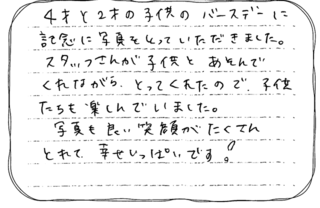 4才と2才の子供のバースデーに
記念に写真をとっていただきました。
スタッフさんが子供とあそんで
くれながら、とってくれたので、子供
たちも楽しんでいました。
写真も良い笑顔がたくさん
とれて、幸せいっぱいです!